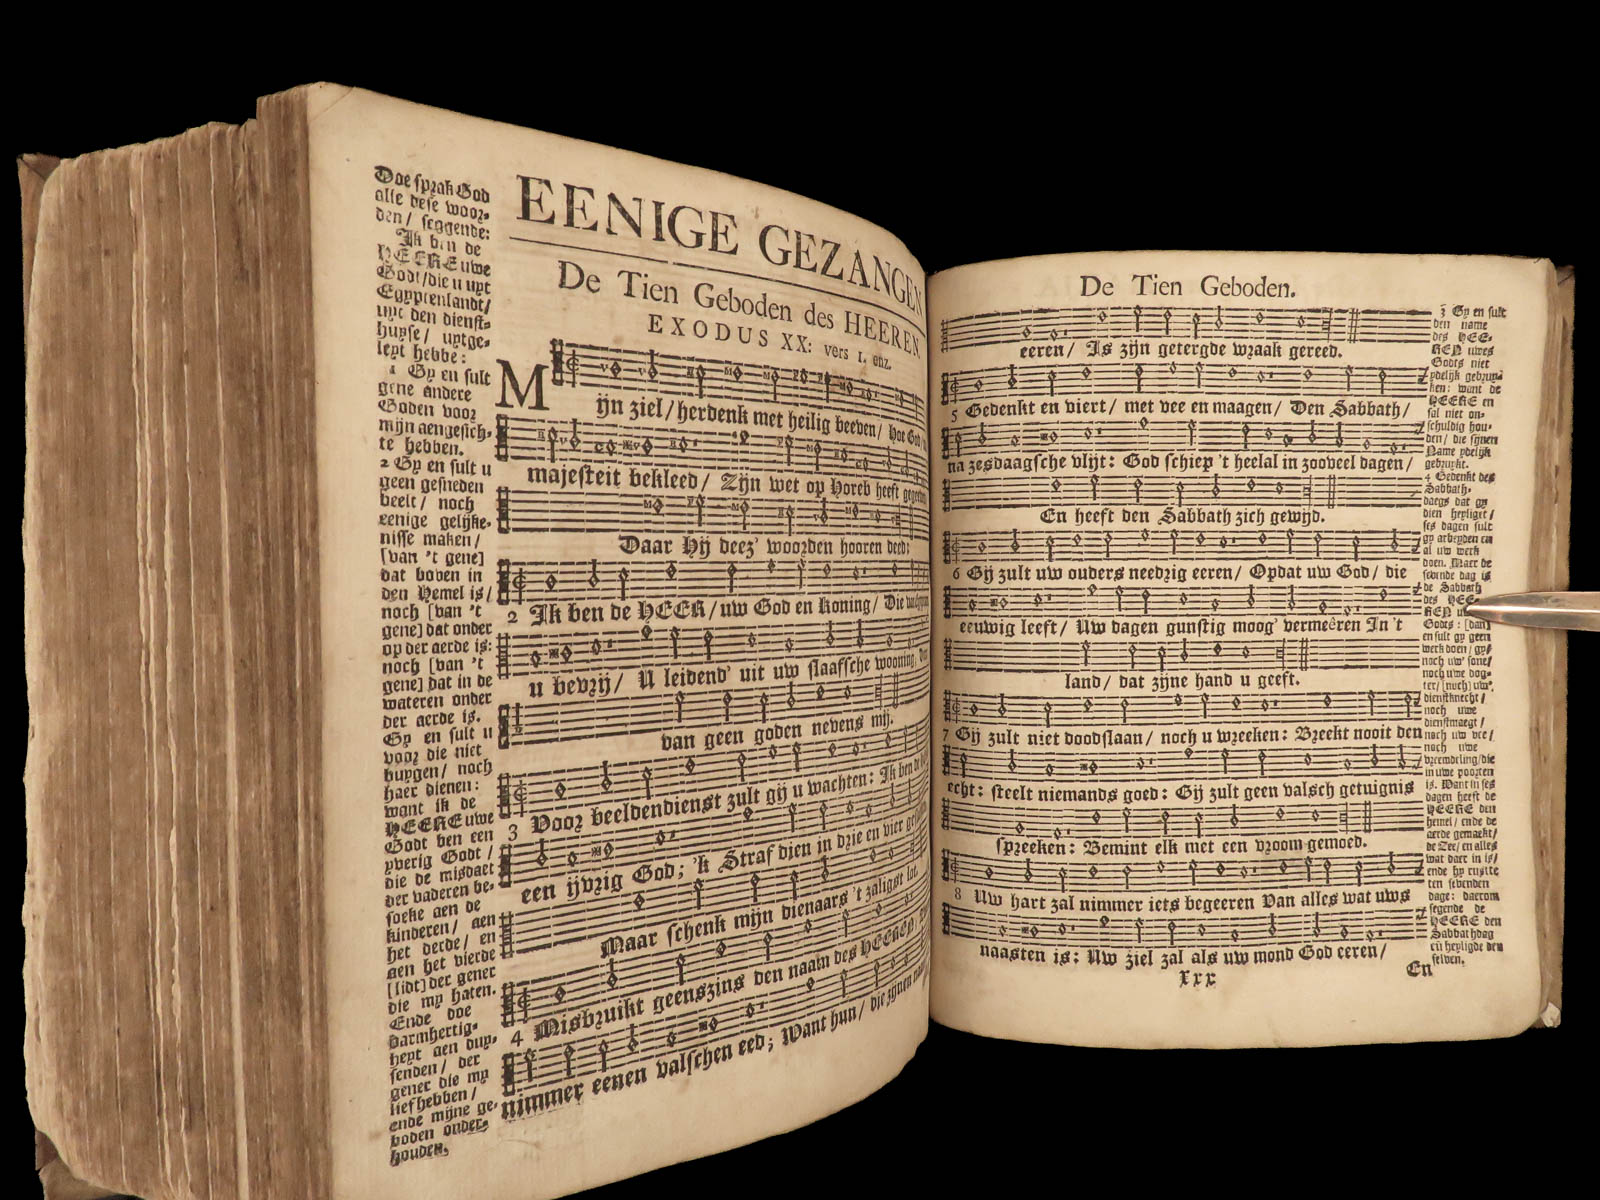 Doe sprak God
alle dese woor-
den/ seggende:
Ik ben de
HEERE uwe
Godt/die u upt
Egyptenlandt/
upt den dienst-
hupse/ uptge-
lept hebbe:
1 Gy en sult
gene andere
Goden voor
mijn aengesich-
te hebben.
2 Gy en sult u
geen gesneden
beelt/ noch
eenige gelijke-
nisse maken/
[van 't gene]
dat boven in
den Hemel is/
noch [van 't
gene] dat onder
op der aerde is:
noch [van 't
gene] dat in de
wateren onder
der aerde is.
Gy en sult u
voor die niet
buygen/ noch
haer dienen:
want ik de
HEERE uwe
Godt ben een
yverig Godt/
die de misdaet
der vaderen be-
soeke aen de
kinderen/ aen
het derde/ en
aen het vierde
[lidt] der gener
die my haten.
Ende doe
barmhertig-
heyt aen duy-
senden/ der
gener die my
liefhebben/
ende mijne ge-
boden onder-
houden.
EENIGE GEZANGEN
De Tien Geboden des HEEREN.
EXODUS XX: vers 1. enz.
Mijn ziel/ herdenk met heilig beeven/ Hoe God
majesteit bekleed/ Zijn wet op Horeb heeft
Daar Hij deez' woorden hooren deed:
2 Ik ben de HEER/ uw God en koning/ Die
u bevrij/ U leidend' uit uw slaafsche wooning,
van geen goden nevens mij.
3 Voor beeldendienst zult gij u wachten: Ik ben de
een ijvrig God; 'k Straf dien in drie en vier
Maar schenk mijn dienaars 't zaligst lot.
4 Misbruikt geenszins den naam des HEEREN,
nimmer eenen valschen eed; Want hun/ die zijnen
De Tien Geboden.
eeren/ Is zijn getergde wraak gereed.
5 Gedenkt en viert/ met vee en maagen/ Den Sabbath/
na zesdaagsche vlijt: God schiep 't heelal in zooveel dagen/
En heeft den Sabbath zich gewijd.
6 Gij zult uw ouders needrig eeren/ Opdat uw God/ die
eeuwig leeft/ Uw dagen gunstig moog' vermeêren In 't
land/ dat zijne hand u geeft.
7 Gij zult niet doodslaan/ noch u wreeken: Breekt nooit den
echt: steelt niemands goed: Gij zult geen valsch getuignis
spreeken: Bemint elk met een vroom gemoed.
8 Uw hart zal nimmer iets begeeren Van alles wat uws
naasten is: Uw ziel zal als uw mond God eeren/
Xxx
En
3 Gy en sult
den name
des HEE-
REN uwes
Godts niet
ydelijk gebruy-
ken: want de
HEERE en
sal niet on-
schuldig hou-
den/ die sijnen
Name ydelijk
gebruykt.
4 Gedenkt des
Sabbath-
daegs dat gy
dien heyliget/
ses dagen sult
gy arbeyden en
al uw werk
doen. Maer de
sevende dag is
de Sabbath
des HEE-
REN
Godts: [dan]
en sult gy geen
werk doen/ gy/
noch uw' sone/
noch uwe dog-
ter/ [noch] uw'
dienstknecht/
noch uwe
dienstmaegt/
noch uw vee/
noch uwe
vreemdeling/die
in uwe poorten
is. Want in ses
dagen heeft de
HEERE den
hemel/ ende de
aerde gemaekt/
de Zee/ en alles
wat daer in is/
ende hy rustte
ten sevenden
dage: daerom
segende de
HEERE den
Sabbathdag
en heyligde den
selven.